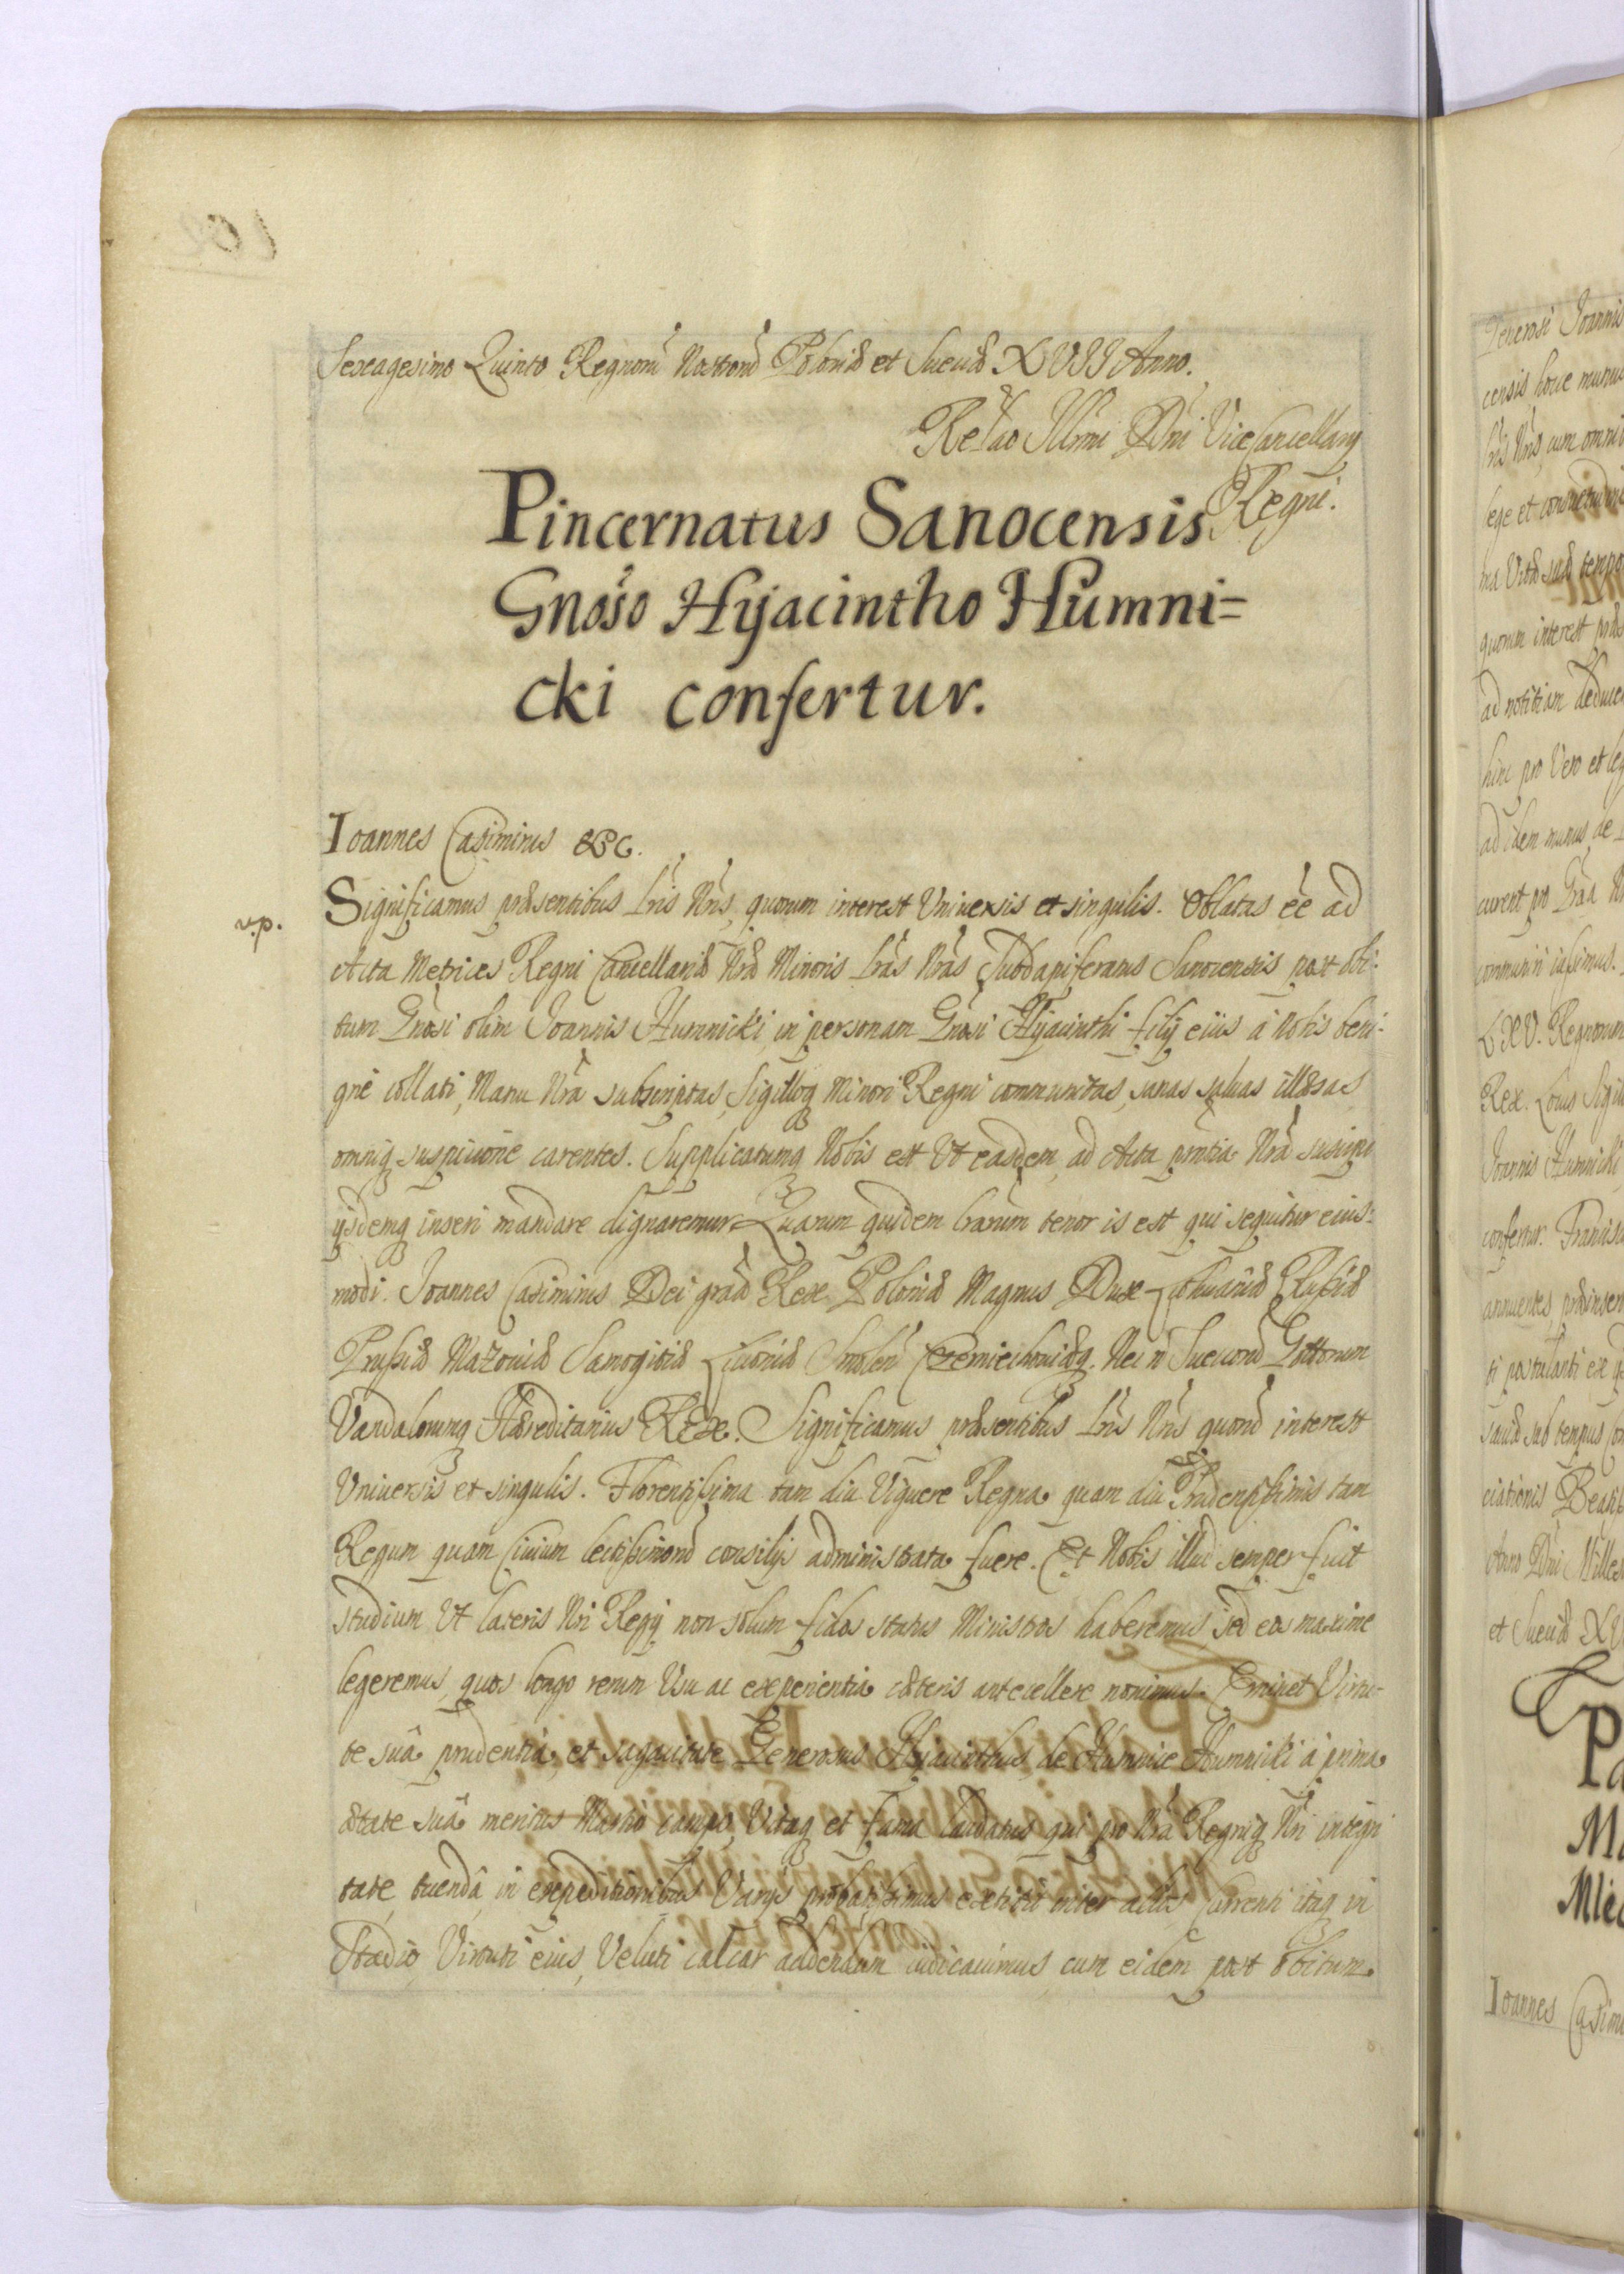 Sexagesimo Quinto Regnorū Nostrorū Poloniæ et Sueciæ XVII Anno.
Relao Illmi Dni ViceCancellarij
Regni.
Pincernatus Sanocensis
Gnoso Hyjacintho Humni=
cki confertur.
Ioannes Casimirus &c.
v.p.
Significamus præsentibus Lris Nris, quorum interest Vniuersis et singulis. Oblatas eē ad
Acta Metrices Regni Cancellariæ Nræ Minoris Lras Nras Subdapiferatus Sanocensis post obi-
tum Gnosi olim Joannis Humnicki, in personam Gnosi Hyjacinthi filij eius à Nobis beni-
gnè collati, Manu Nrâ subscriptas, Sigilloq Minori Regni communitas, sanas saluas illæsas
omniq suspicione carentes. Supplicatumq Nobis est Vt easdem, ad Acta pntia Nra suscipi
ijsdemq inseri mandare dignaremur Quarum quidem Lrarum tenor is est qui sequitur eius-
modi. Joannes Casimirus Dei gratiâ Rex Poloniæ Magnus Dux Lithuaniæ Rußiæ
Prußiæ Mazouiæ Samogitiæ Liuoniæ Smolen Czerniechouiæq. Nec n Suecorū Gottorum
Vandalorumq Hæreditarius REX. Significamus præsentibus Lris Nris quorū interest
Vniuersis et singulis. Florentißima tam diu Viguere Regna quam diu Prudentißimis tam
Regum quam Ciuium lectißimorū consilijs administrata fuere. Et Nobis illud semper fuit
studium Vt lateris Nri Regij non solum fidos status Ministros haberemus sed eos maxime
legeremus, quos longo rerum Vsu ac experientia cæteris antecellere nouimus. Eminet Virtu-
te suâ prudentia, et sagacitate Generosus Hyjacinthus de Humnie Humnicki à prima
ætate suâ meritus Martio campo, Vitaq et fama laudatus qui pro Nra Regniq Nri integri
tate, tuendâ in expeditionibus Varijs probatißimus extitit miles Currenti itaq in
Stadio Virtuti eius, Veluti calcar addendum iudicauimus cum eidem post obitum